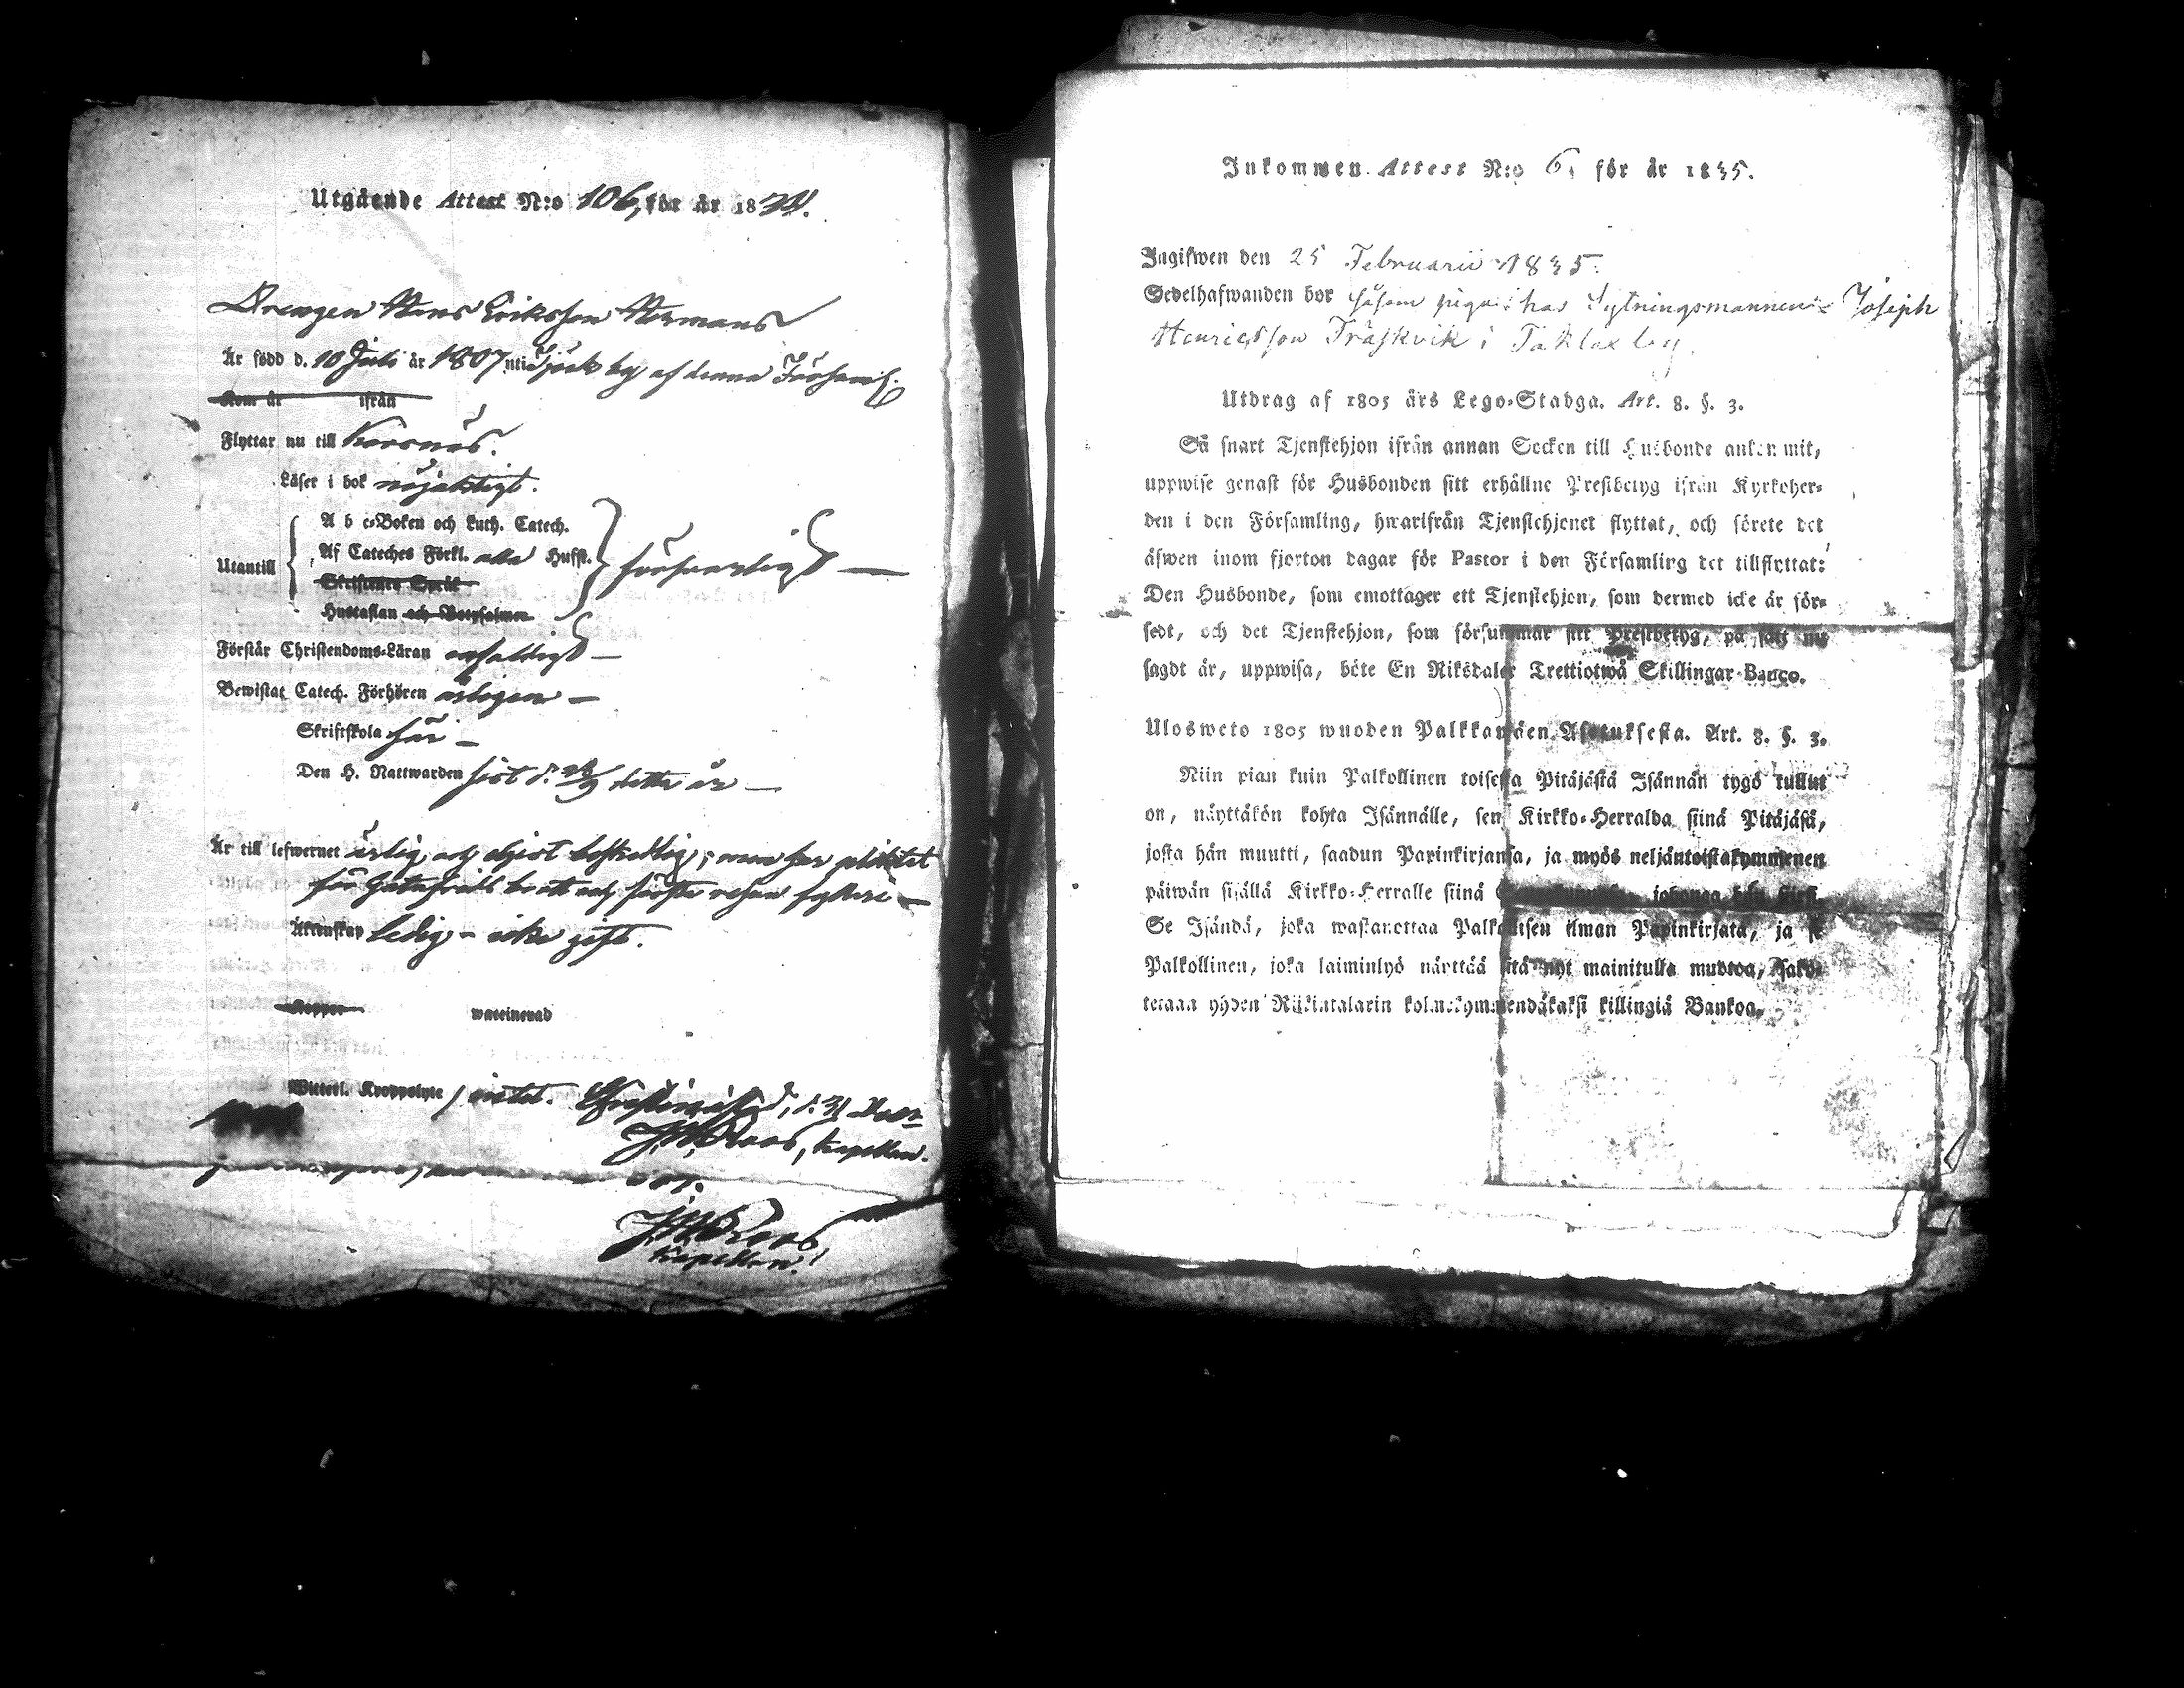 Utgående Attest N:o 106, för år 1834.
Drengen Hans Eriksson Normans
Är född d. 10 Juli år 1807 uti by af denna Församl.
Kom år ifrån
Flyttar nu till Korsnäs.
Läser i bok nöjaktigt.
A b c-Boken och Luth. Catech.
Af Cateches Förkl. alla Hufst.
Utantill försvarligt —
Skriftenes Språk
Hustaflan och Botpsalmen
Förstår Christendoms-Läran enfaldigt —
Bewistat Catech. Förhören årligen —
Skriftskola här —
Den H. Nattwarden sist d. detta år —
Är till lefwernet ärlig och eljest beskedlig; men har pliktat
för och första resan fylleri —
Äktenskap ledig — icke gift.
Koppor waccinerad
Witterl. Kroppslyte, intet. Christinæstad, d. 31 Decr
Kapellan.
Kapellan.
Inkommen Attest N:o 6. för år 1835.
Ingifwen den 25 Februarii 1835.
Sedelhafwanden bor såsom piga hos Sytningsmannen Joseph
Henricsson Träskvik i Taklax by.
Utdrag af 1805 års Lego-Stadga. Art. 8. §. 3.
Så snart Tjenstehjon ifrån annan Socken till Husbonde ankommit,
uppwise genast för Husbonden sitt erhållne Prestbetyg ifrån Kyrkoher-
den i den Församling, hwarifrån Tjenstehjonet flyttat, och förete det
äfwen inom fjorton dagar för Pastor i den Församling det tillflyttat:
Den Husbonde, som emottager ett Tjenstehjon, som dermed icke är för-
sedt, och det Tjenstehjon, som försummar sitt Prestbetyg, på sätt nu
sagdt är, uppwisa, böte En Riksdaler Trettiotwå Skillingar Banco.
Ulosweto 1805 wuoden Palkkawäen Asetuksesta. Art. 8. §. 3.
Niin pian kuin Palkollinen toisesta Pitäjästä Isännän tygö tullut
on, näyttäkön kohta Isännälle, sen Kirkko-Herralda siinä Pitäjäsä,
josta hän muutti, saadun Papinkirjansa, ja myös neljäntoistakymmenen
päiwän sisällä Kirkko-Herralle siinä johonga hän
Se Isändä, joka wastanottaa Palkollisen ilman Papinkirjata, ja se
Palkollinen, joka laiminlyö näyttää sitä nyt mainitulla muotoa, sako-
tetaan yhden Riikintalarin kolmekymmendäkaksi killingiä Bankoa.